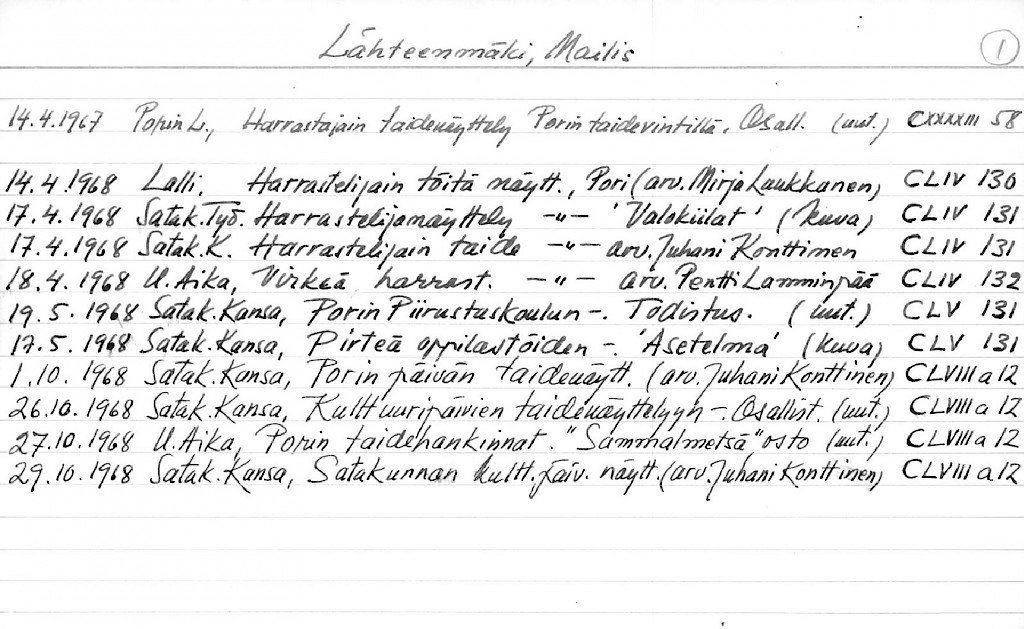 Lähteenmäki, Mailis
1
14.4.1967 Porin L., Harrastajain taidenäyttely Porin taidevintillä. Osall. (uut.) CXXXXIII 58
14.4.1968 Lalli, Harrastelijain töitä näytt., Pori (arv. Mirja Luukkanen) CLIV 130
17.4.1968 Satak.Työ. Harrastelijanäyttely —"— 'Valokiilat' (kuva) CLIV 131
17.4.1968 Satak.K. Harrastelijain taide —"— arv. Juhani Konttinen CLIV 131
18.4.1968 U.Aika, Virkeä harrast. —"— arv. Pentti Lamminpää CLIV 132
19.5.1968 Satak.Kansa, Porin Piirustuskoulun -. Todistus. (uut.) CLV 131
17.5.1968 Satak.Kansa, Pirteä oppilastöiden -. 'Asetelma' (kuva) CLV 131
1.10.1968 Satak.Kansa, Porin päivän taidenäytt. (arv. Juhani Konttinen) CLVIII a 12
26.10.1968 Satak.Kansa, Kulttuuripäivien taidenäyttelyyn -. Osallist. (uut.) CLVIII a 12
27.10.1968 U.Aika, Porin taidehankinnat. "Sammalmetsä" osto (uut.) CLVIII a 12
29.10.1968 Satak.Kansa, Satakunnan kultt.päiv. näytt. (arv. Juhani Konttinen) CLVIII a 12